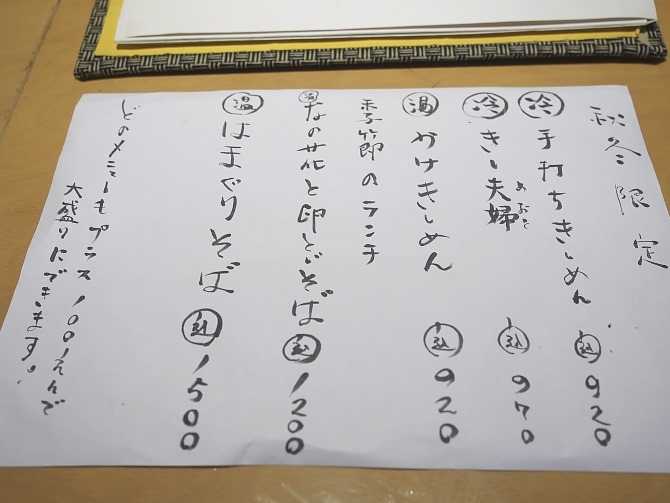 秋冬限定
冷 手打ちきしめん 込 920
冷 きし夫婦 めおと 込 970
温 かけきしめん 込 920
季節のランチ
温 なの花と卵とじそば 込 1200
温 はまぐりそば 込 1500
どのメニューもプラス100えんで
大盛りにできます!